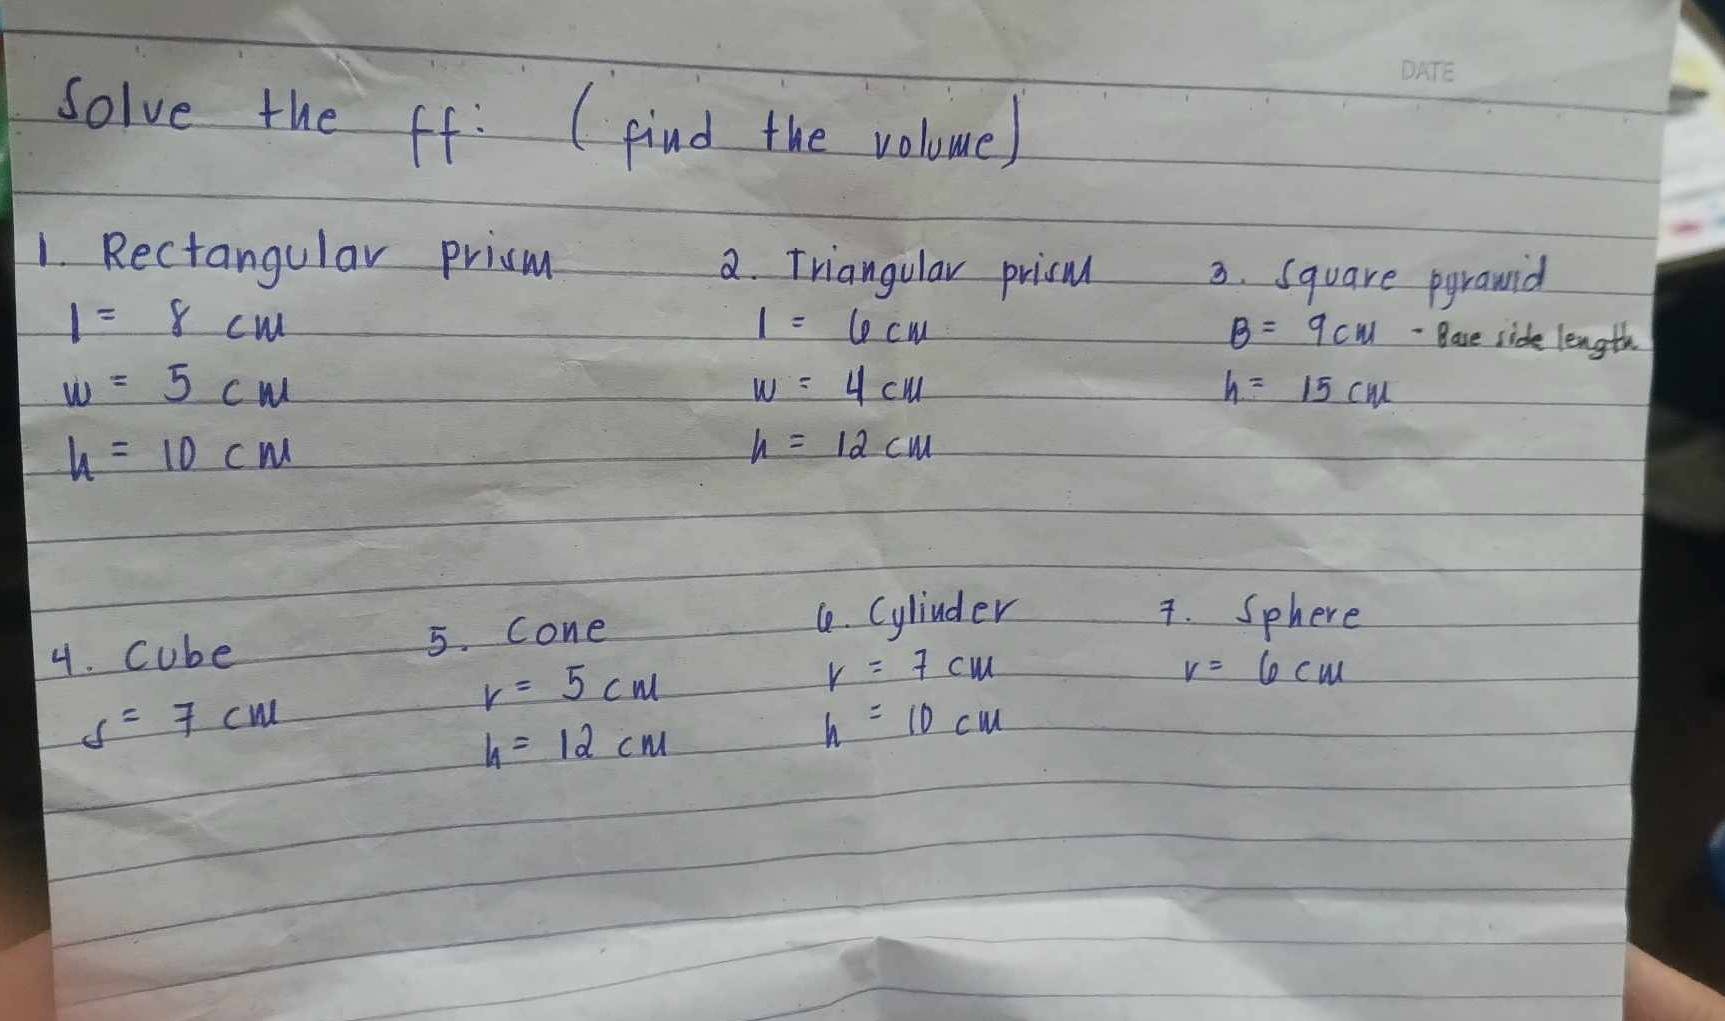 DATE
Solve the ff: (find the volume)
1. Rectangular prism
l = 8 cm
w = 5 cm
h = 10 cm
2. Triangular prism
l = 6 cm
w = 4 cm
h = 12 cm
3. Square pyramid
B = 9 cm - Base side length
h = 15 cm
4. Cube
s = 7 cm
5. Cone
r = 5 cm
h = 12 cm
6. Cylinder
r = 7 cm
h = 10 cm
7. Sphere
r = 6 cm